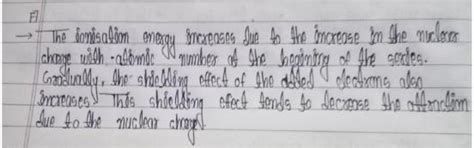 → The ionisation energy increases due to the increase in the nuclear
charge with atomic number at the beginning of the series.
Gradually, the shielding effect of the added electrons also
increases. This shielding effect tends to decrease the attraction
due to the nuclear charge